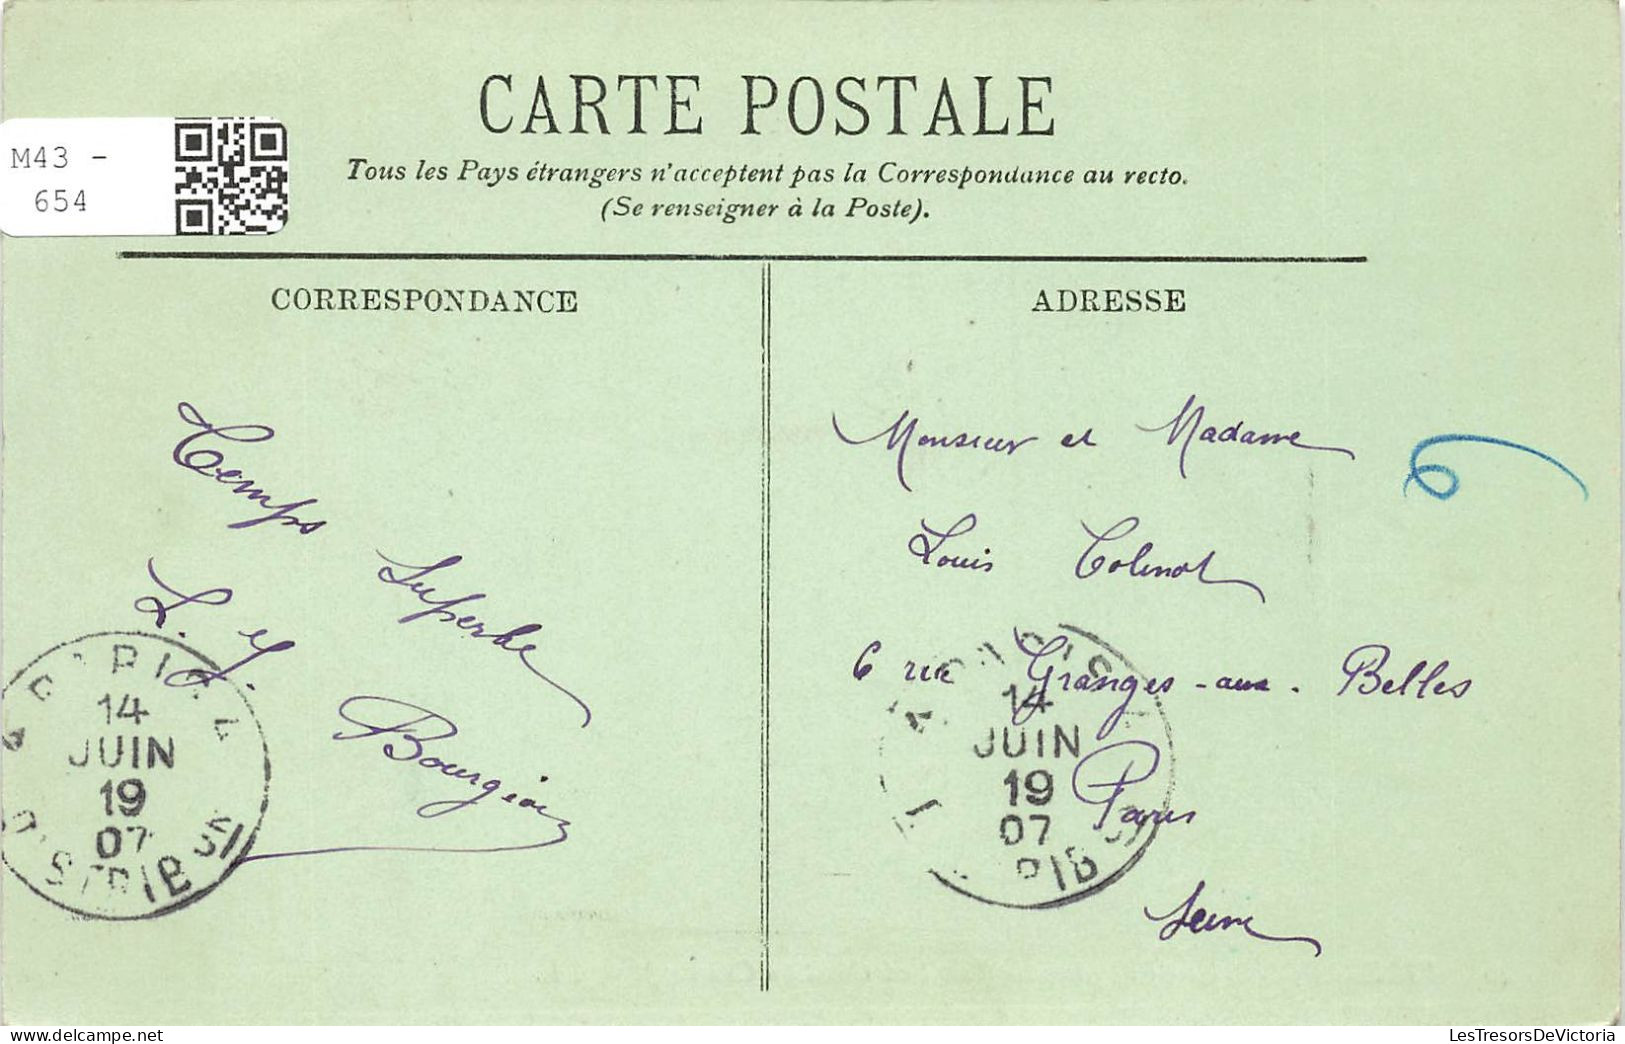 CARTE POSTALE
Tous les Pays étrangers n'acceptent pas la Correspondance au recto.
(Se renseigner à la Poste).
M43 -
654
CORRESPONDANCE
Temps
superbe
L. Y.
Bourgion
14
JUIN
19
07
ADRESSE
Monsieur et Madame
Louis Colinot
6 rue Granges-aux-Belles
Paris
Seine
14
JUIN
19
07
DISTRIB
LesTresorsDeVictoria
delcampe.net